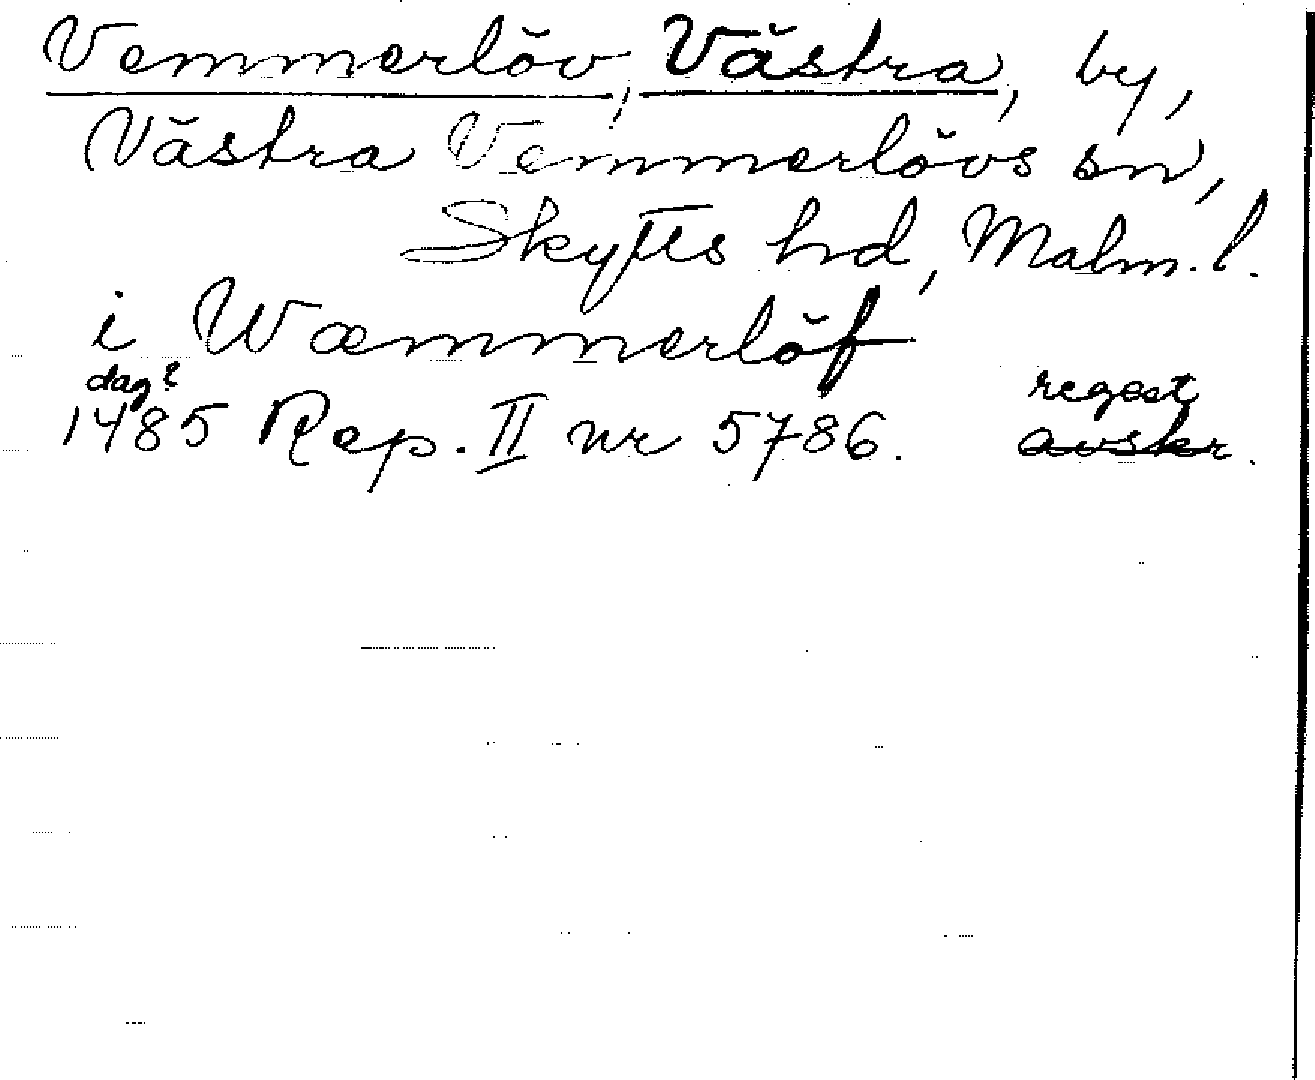 Vemmerlöv, Västra, by,
Västra Vemmerlövs sn,
Skytts hd, Malm. l.
i Wæmmerlöf
dag?
regest
1485 Rep. II nr 5786. avskr.